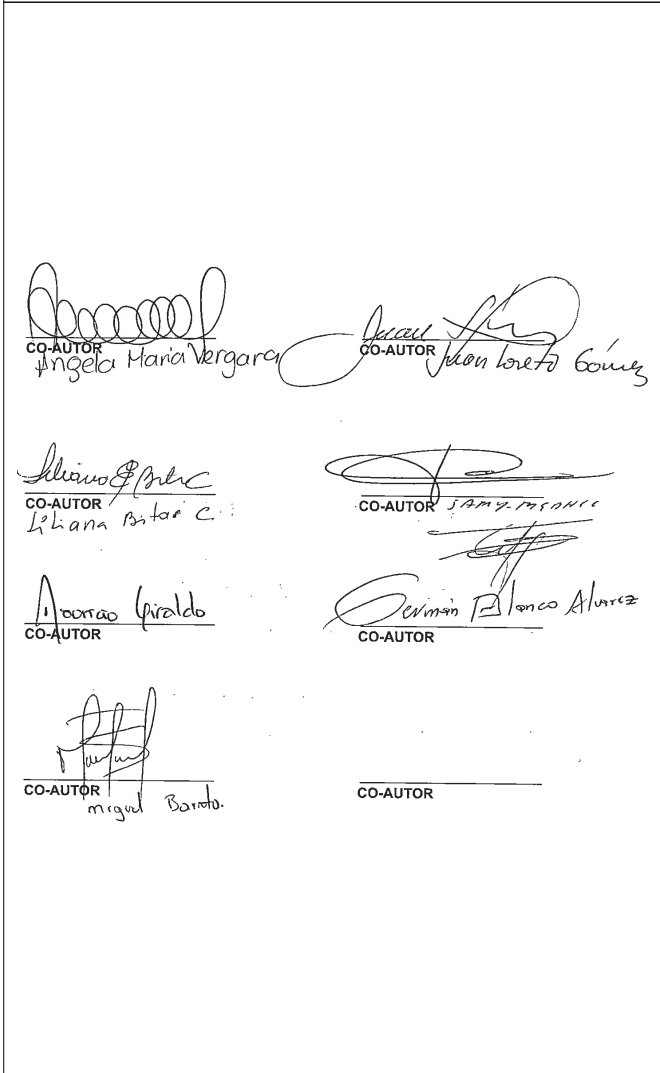 CO-AUTOR
Angela Maria Vergara
Juan
CO-AUTOR
Juan Loreto Gómez
Liliana Bitar C
CO-AUTOR
Liliana Bitar C.
CO-AUTOR
SAMY
Giraldo
CO-AUTOR
Germán Blanco Alvarez
CO-AUTOR
CO-AUTOR
Miguel Barreto.
CO-AUTOR